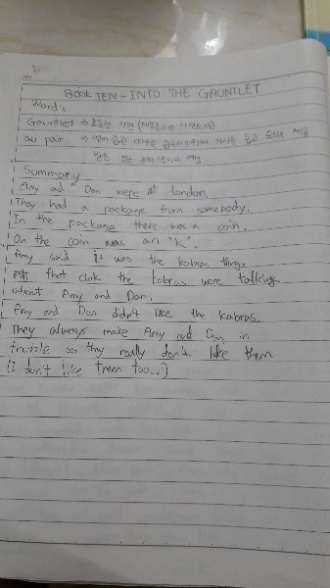 BOOK TEN - INTO THE GAUNTLET
Word's
Gauntlet →
au pair →
Summary
Amy and Dan were at London.
They had a package from somebody.
In the package there was a coin.
On the coin was an "k".
Amy said it was the kabras thing.
At that clok the kabras were talking
about Amy and Dan.
Amy and Dan didn't like the kabras.
They always make Amy and Dan in
trouble so they really don't like them
(I don't like them too..)